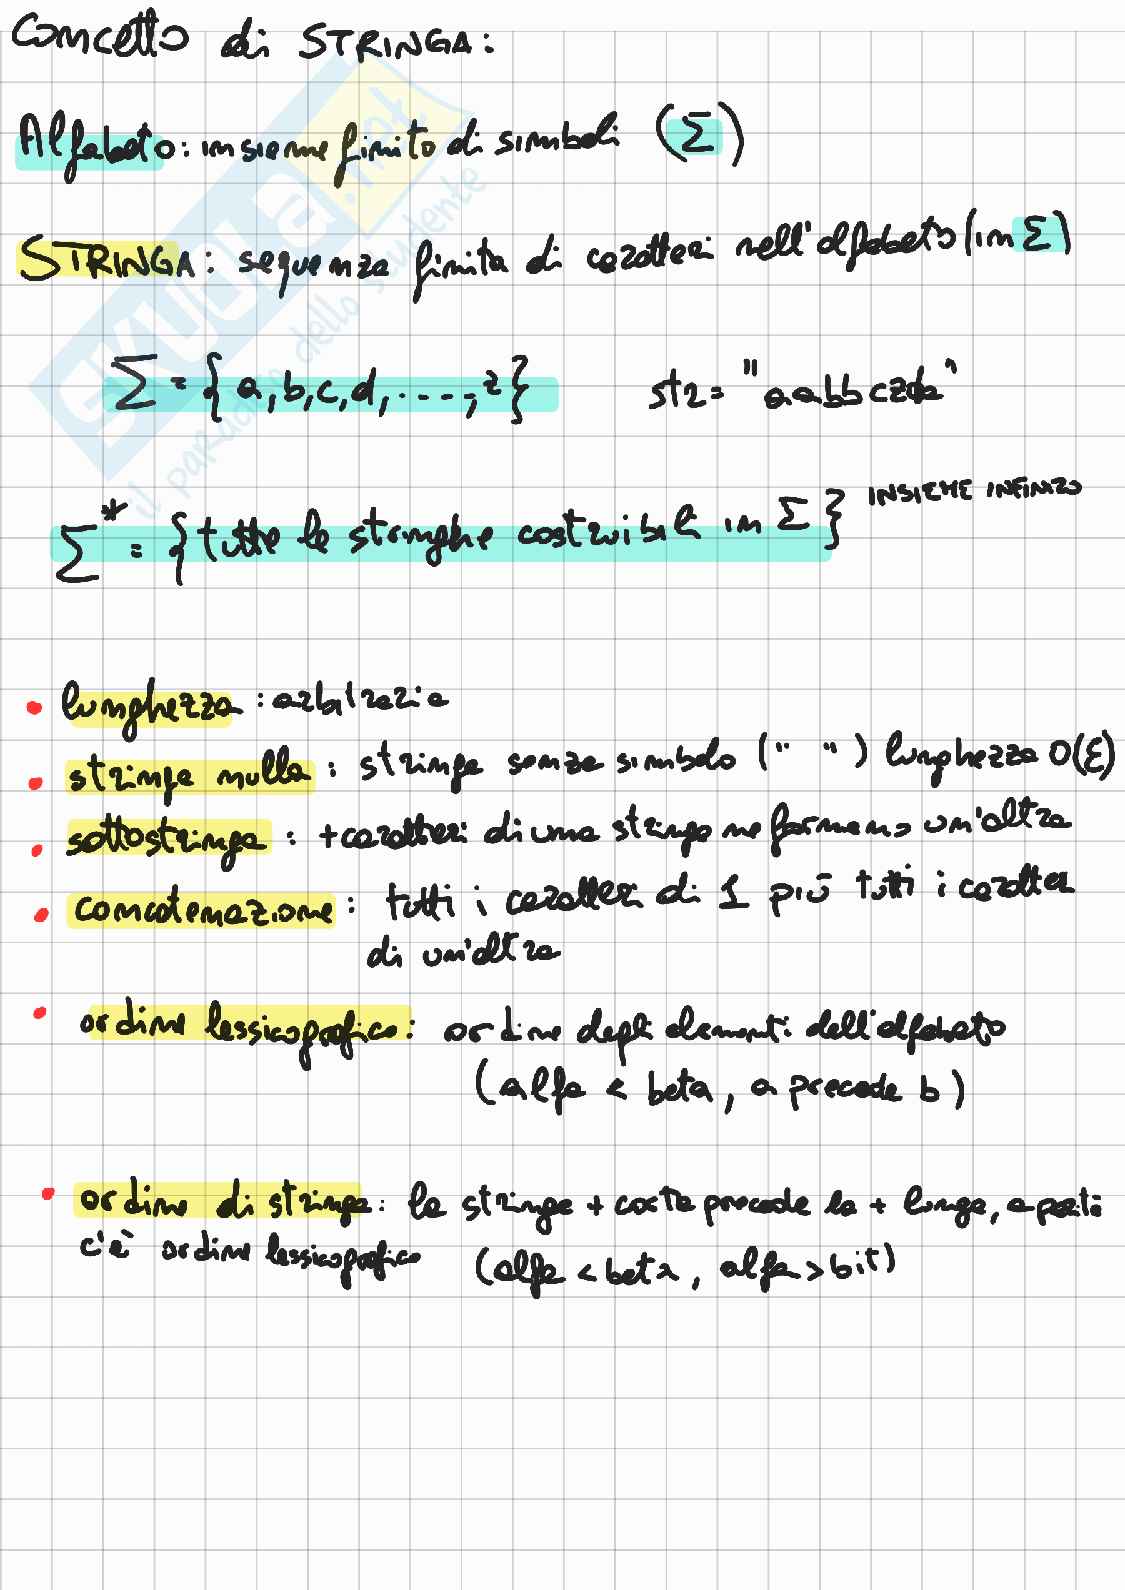 Concetto di STRINGA:
Alfabeto: insieme finito di simboli (Σ)
STRINGA: sequenza finita di caratteri nell'alfabeto (in Σ)
Σ = {a, b, c, d, ...., z} str = "aabbczda"
Σ* = {tutte le stringhe costruibili in Σ} INSIEME INFINITO
• lunghezza: arbitraria
• stringa nulla: stringa senza simbolo (" ") lunghezza 0 (ε)
• sottostringa: + caratteri di una stringa ne formano un'altra
• concatenazione: tutti i caratteri di 1 più tutti i caratteri
di un'altra
• ordine lessicografico: ordine degli elementi dell'alfabeto
(alfa < beta, a precede b)
• ordine di stringa: la stringa + corta precede la + lunga, a parità
c'è ordine lessicografico (alfa < beta, alfa > bit)
SKUOLA.net
il paradiso dello studente